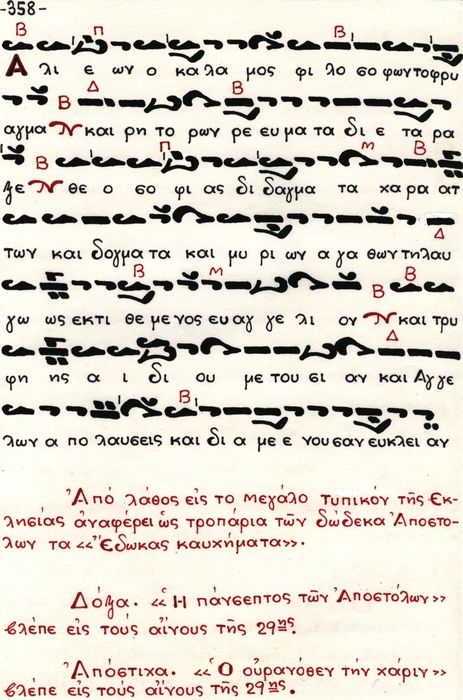 -358-
Α λι ε ων ο κα λα μος φι λο σο φων το φρυ
αγμα και ρη το ρων ρε ευ μα τα δι ε τα ρα
ξε θε ο σο φι ας δι δαγμα τα χα ρα ατ
των και δογμα τα και μυ ρι ων α γα θων τηλαυ
γω ως εκτι θε με νος ευ αγ γε λι ον και τρυ
φη ης α ι δι ου με του σι αν και Αγγε
λων α πο λαυσεις και δι α με ε νου σαν ευκλει αν
Ἀπό λάθος εἰς το μεγάλο τυπικόν τῆς Ἐκ-
λησίας ἀναφέρει ὡς τροπάρια τῶν δώδεκα Ἀποστό-
λων τα «Ἔδωκας καυχήματα».
Δόξα. «Ἡ πάνσεπτος τῶν Ἀποστόλων»
βλέπε εἰς τούς αἴνους τῆς 29ης.
Ἀπόστιχα. «Ὁ οὐρανόθεν τήν χάριν»
βλέπε εἰς τούς αἴνους τῆς 29ης.